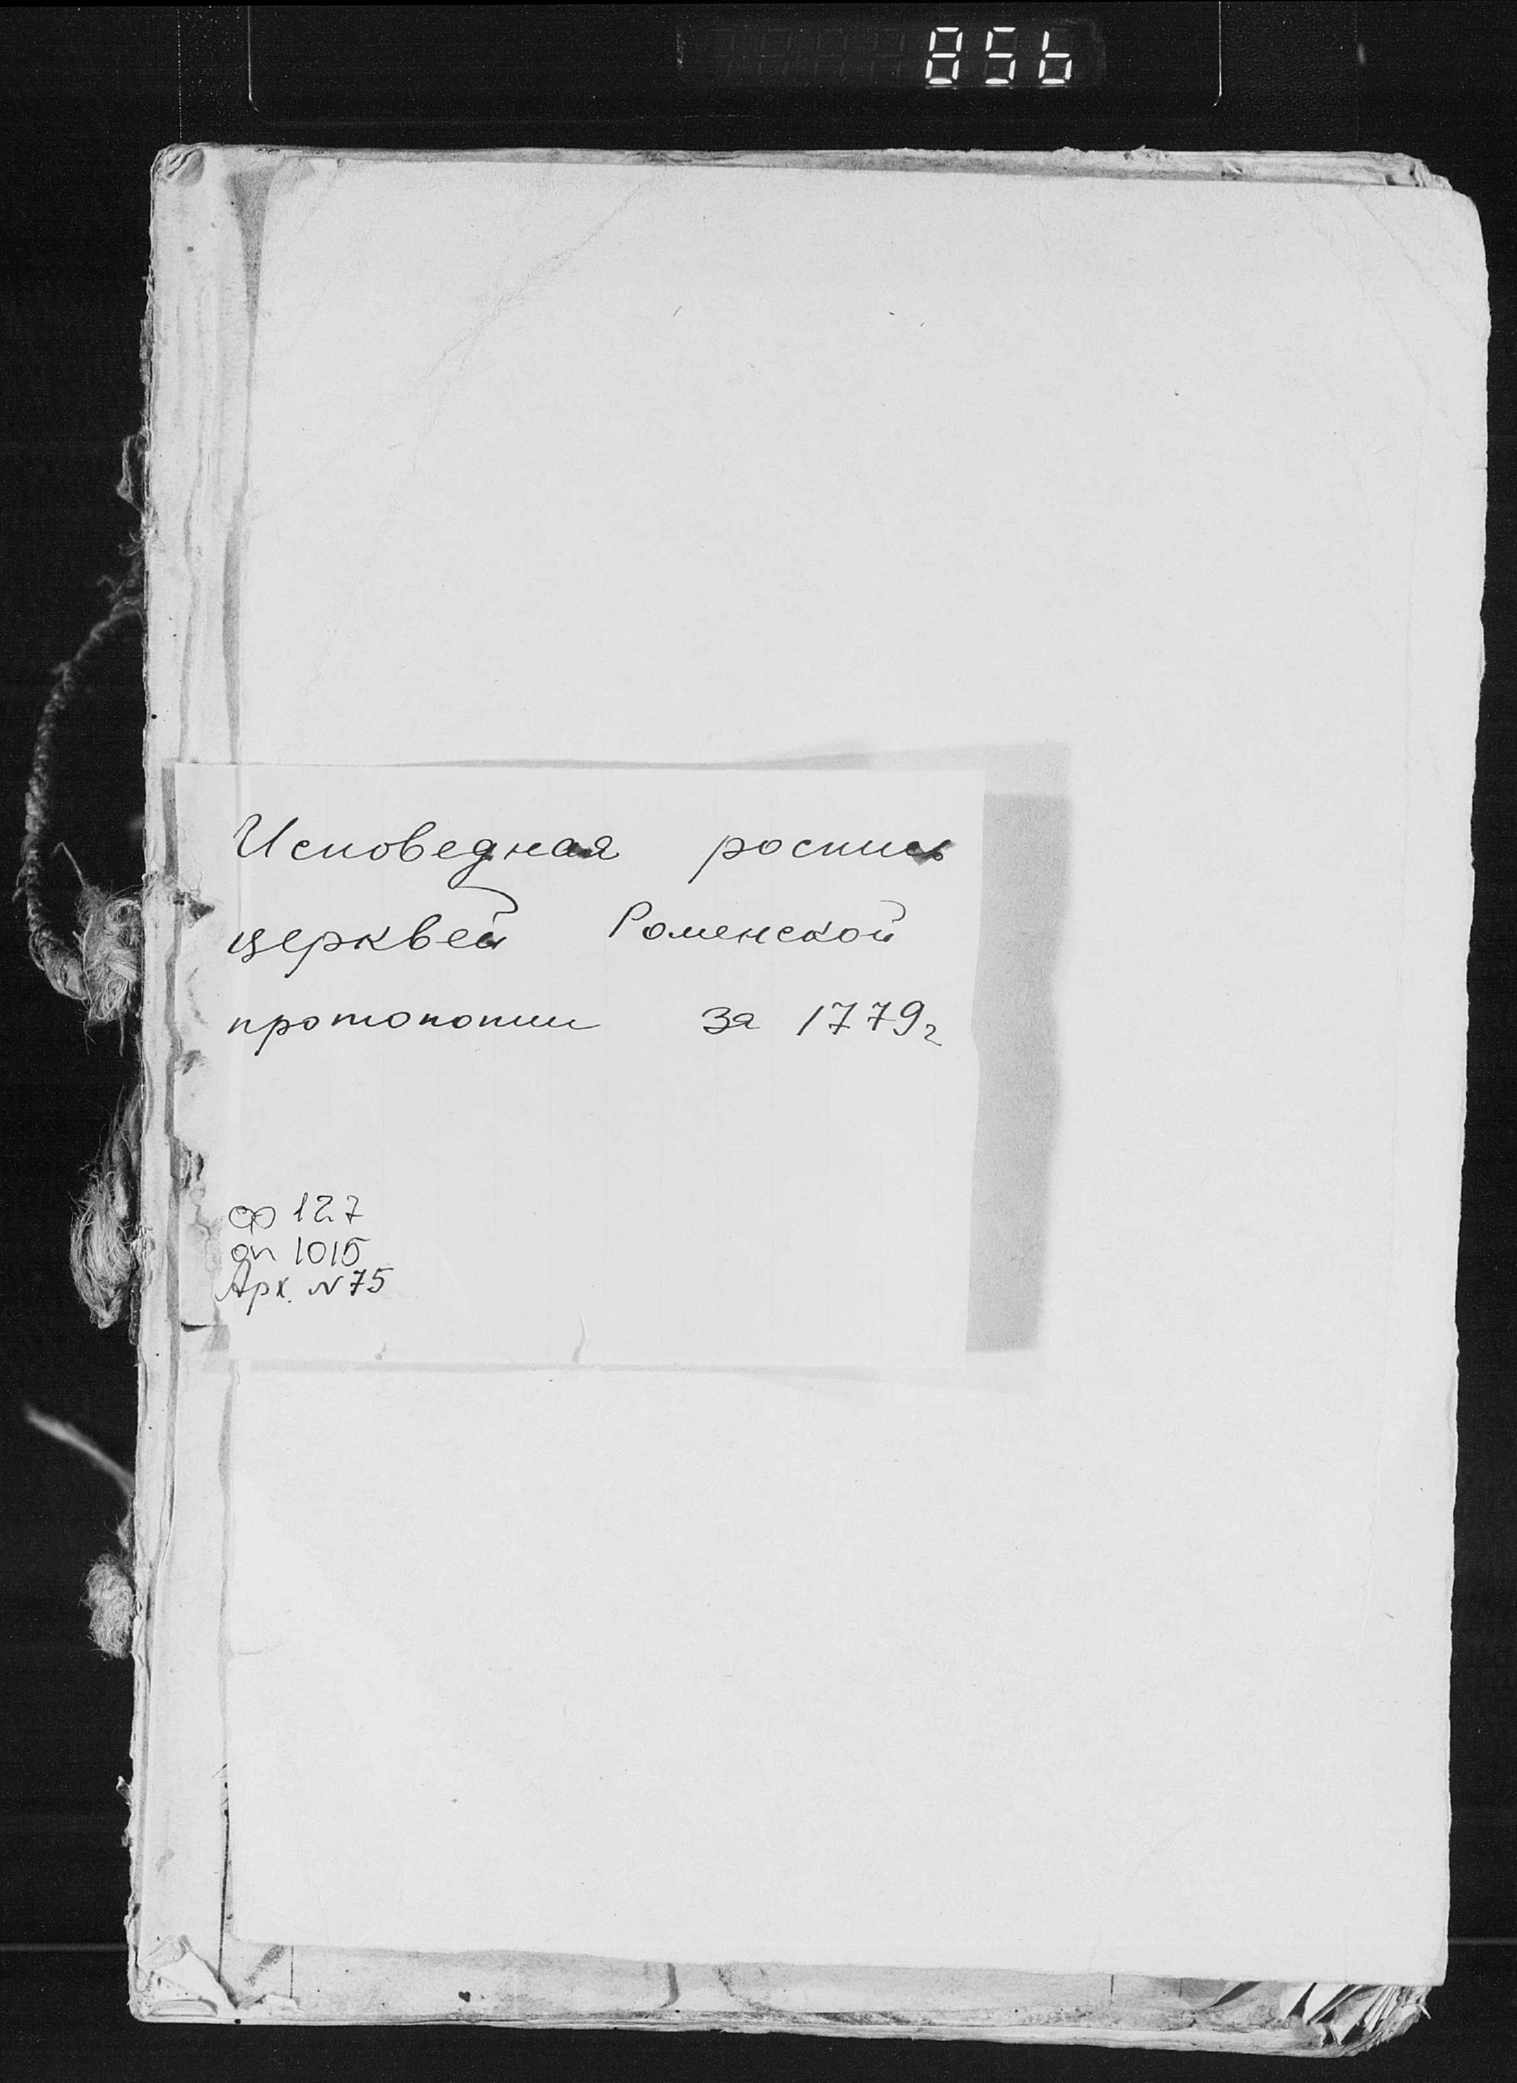 856
Исповедная роспись
церквей Роменской
протопопии за 1779г
ф 127
оп 1015
Арх. N75